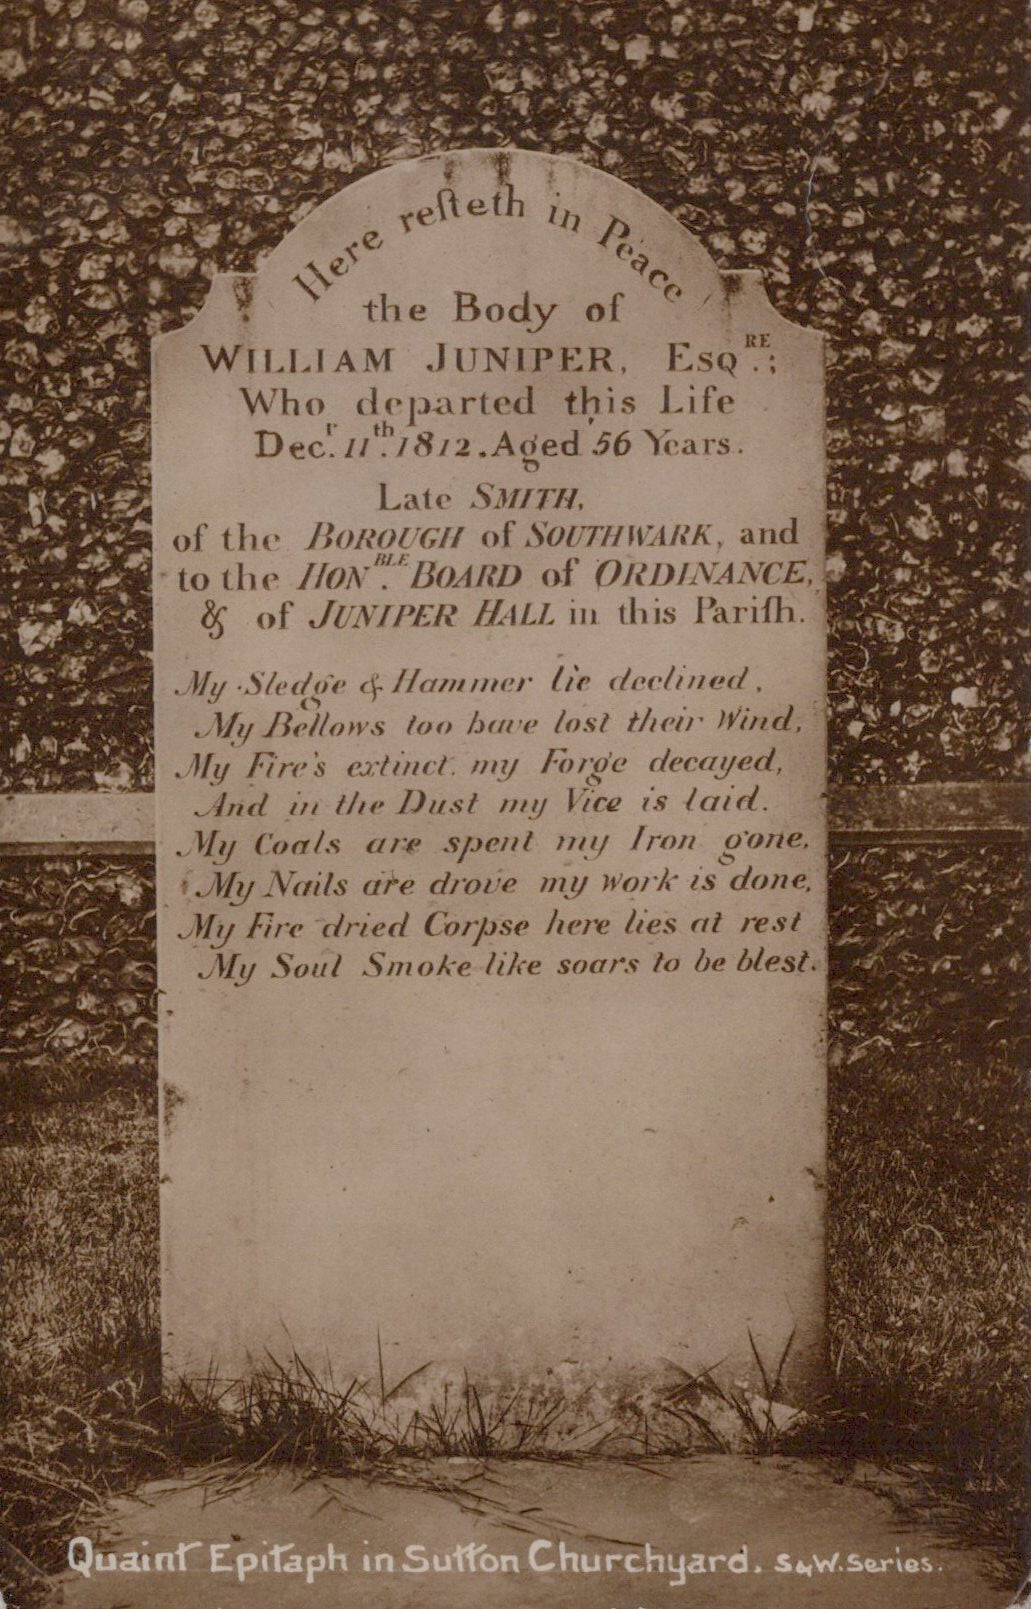 Here reſteth in Peace
the Body of
WILLIAM JUNIPER, ESQRE.;
Who departed this Life
Decr. 11th. 1812. Aged 56 Years.
Late SMITH,
of the BOROUGH of SOUTHWARK, and
to the HONBLE. BOARD of ORDINANCE,
& of JUNIPER HALL in this Pariſh.
My Sledge & Hammer lie declined,
My Bellows too have lost their Wind,
My Fire's extinct, my Forge decayed,
And in the Dust my Vice is laid.
My Coals are spent my Iron gone,
My Nails are drove my work is done,
My Fire dried Corpse here lies at rest
My Soul Smoke like soars to be blest.
Quaint Epitaph in Sutton Churchyard. S&W. Series.